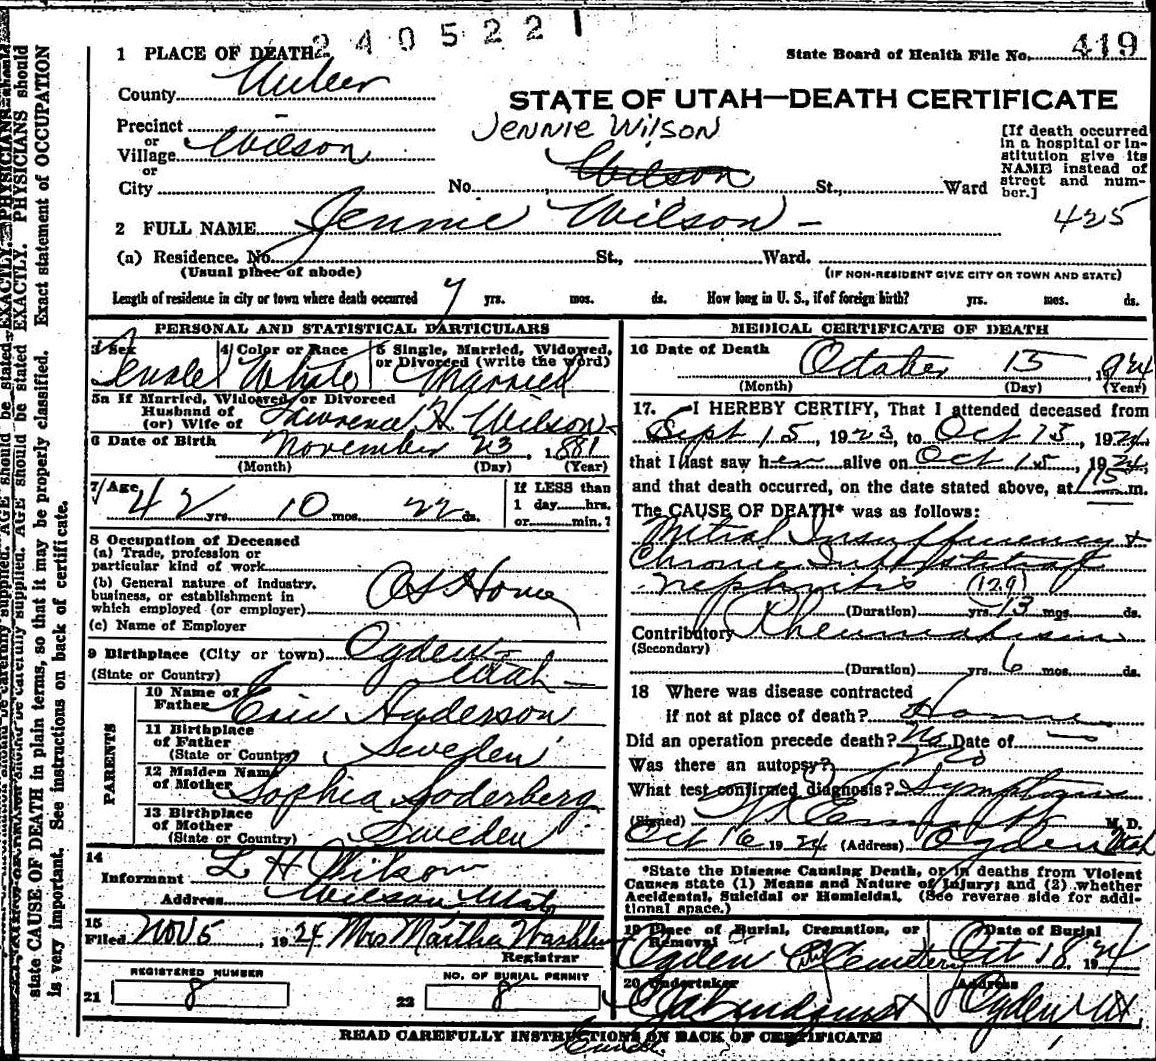 240522
1 PLACE OF DEATH
State Board of Health File No. 419
County Weber
STATE OF UTAH—DEATH CERTIFICATE
Precinct
or
Village Wilson
or
City
JENNIE WILSON
Wilson
No. St., Ward
[If death occurred
in a hospital or in-
stitution give its
NAME instead of
street and num-
ber.]
425
2 FULL NAME Jennie Wilson
(a) Residence. No. St., Ward.
(Usual place of abode) (IF NON-RESIDENT GIVE CITY OR TOWN AND STATE)
Length of residence in city or town where death occurred 7 yrs. mos. ds. How long in U. S., if of foreign birth? yrs. mos. ds.
PERSONAL AND STATISTICAL PARTICULARS
3 Sex Female
4 Color or Race White
5 Single, Married, Widowed,
or Divorced (write the word)
Married
5a If Married, Widowed, or Divorced
Husband of
(or) Wife of Lawrence H Wilson
6 Date of Birth November 23, 1881
(Month) (Day) (Year)
7 Age 42 yrs. 10 mos. 22 ds.
If LESS than
1 day hrs.
or min.?
8 Occupation of Deceased
(a) Trade, profession or
particular kind of work
(b) General nature of industry,
business, or establishment in
which employed (or employer) At Home
(c) Name of Employer
9 Birthplace (City or town) Ogden
(State or Country) Utah
PARENTS
10 Name of
Father Eric Anderson
11 Birthplace
of Father
(State or Country) Sweden
12 Maiden Name
of Mother Sophia Soderberg
13 Birthplace
of Mother
(State or Country) Sweden
14
Informant L H Wilson
Address Wilson Utah
15
Filed NOV 5, 1924 Mrs Martha
Registrar
REGISTERED NUMBER
21 8
NO. OF BURIAL PERMIT
22 8
MEDICAL CERTIFICATE OF DEATH
16 Date of Death October 15, 1924
(Month) (Day) (Year)
17. I HEREBY CERTIFY, That I attended deceased from
Sept 15, 1923, to Oct 13, 1924,
that I last saw her alive on Oct 15, 1924,
and that death occurred, on the date stated above, at 115 m.
The CAUSE OF DEATH* was as follows:
Mitral Insufficiency +
Chronic
Nephritis (129)
(Duration) yrs. 13 mos. ds.
Contributory Rheumatism
(Secondary)
(Duration) yrs. 6 mos. ds.
18 Where was disease contracted
if not at place of death? Home
Did an operation precede death? No Date of
Was there an autopsy? No
What test confirmed diagnosis? Symptoms
(Signed) M. D.
Oct 16 1924 (Address) Ogden Utah
*State the Disease Causing Death, or in deaths from Violent
Causes state (1) Means and Nature of Injury; and (2) whether
Accidental, Suicidal or Homicidal. (See reverse side for addi-
tional space.)
19 Place of Burial, Cremation, or
Removal
Ogden City Cemetery
Date of Burial
Oct 18, 1924
20 Undertaker
Address
Ogden Ut
READ CAREFULLY INSTRUCTIONS ON BACK OF CERTIFICATE
supplied. AGE should be stated EXACTLY. PHYSICIANS should
state CAUSE OF DEATH in plain terms, so that it may be properly classified. Exact statement of OCCUPATION
is very important. See instructions on back of certificate.